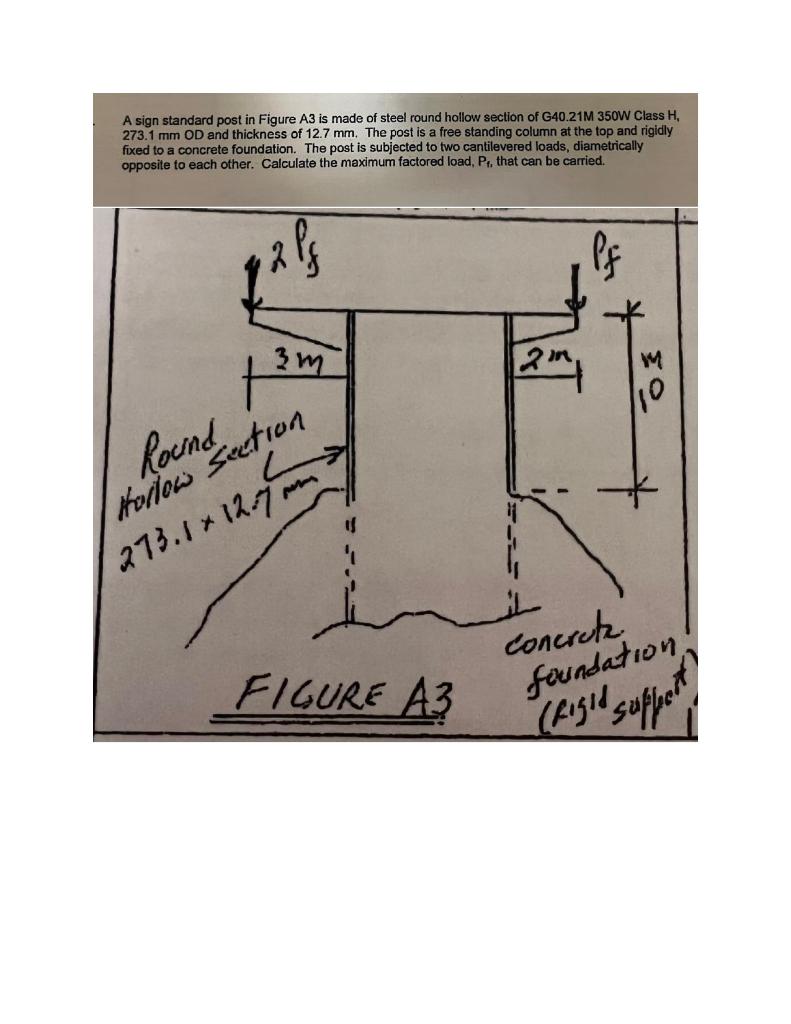 A sign standard post in Figure A3 is made of steel round hollow section of G40.21M 350W Class H,
273.1 mm OD and thickness of 12.7 mm. The post is a free standing column at the top and rigidly
fixed to a concrete foundation. The post is subjected to two cantilevered loads, diametrically
opposite to each other. Calculate the maximum factored load, Pf, that can be carried.
2 Pf
Pf
3 m
2 m
10 m
Round
Hollow Section
273.1 x 12.7 mm
concrete
foundation
(Rigid support)
FIGURE A3